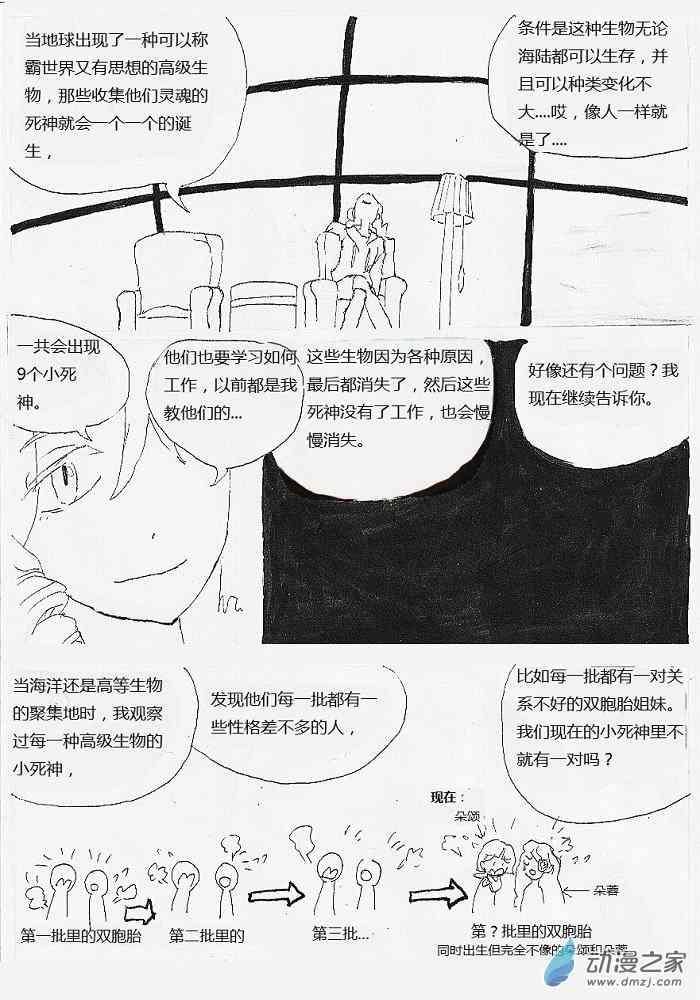 当地球出现了一种可以称
霸世界又有思想的高级生
物，那些收集他们灵魂的
死神就会一个一个的诞
生，
条件是这种生物无论
海陆都可以生存，并
且可以种类变化不
大....哎，像人一样就
是了....
一共会出现
9个小死
神。
他们也要学习如何
工作，以前都是我
教他们的...
这些生物因为各种原因，
最后都消失了，然后这些
死神没有了工作，也会慢
慢消失。
好像还有个问题？我
现在继续告诉你。
当海洋还是高等生物
的聚集地时，我观察
过每一种高级生物的
小死神，
发现他们每一批都有一
些性格差不多的人，
比如每一批都有一对关
系不好的双胞胎姐妹。
我们现在的小死神里不
就有一对吗？
现在：
朵颂
朵蓉
第一批里的双胞胎
第二批里的
第三批...
第？批里的双胞胎
同时出生但完全不像的朵颂和朵蓉
动漫之家
www.dmzj.com